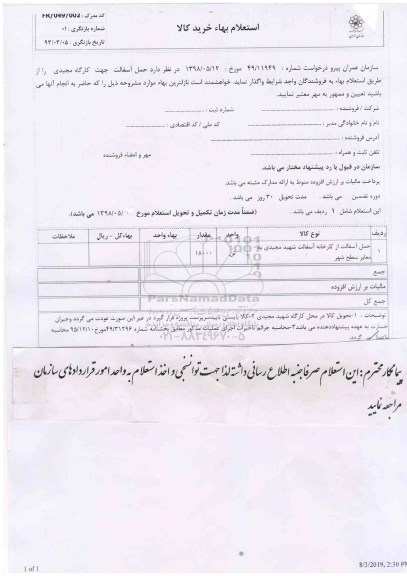 کد مدرک: FR/049/002
شماره بازنگری: ۰۱
تاریخ بازنگری: ۹۴/۰۴/۰۵
استعلام بهاء خرید کالا
سازمان عمران پیرو درخواست شماره : ۴۹/۱۱۹۴۹ مورخ : ۱۳۹۸/۰۵/۱۲ در نظر دارد حمل آسفالت جهت کارگاه مجیدی را از
طریق استعلام بهاء به فروشندگان واجد شرایط واگذار نماید. خواهشمند است نازلترین بهاء موارد مشروحه ذیل را که حاضر به انجام آنها می
باشید تعیین و ممهور به مهر معتبر نمایید.
شرکت / فروشنده : شماره ثبت :
نام و نام خانوادگی مدیر : کد ملی / کد اقتصادی :
آدرس فروشنده :
تلفن ثابت و همراه : مهر و امضاء فروشنده
سازمان در قبول یا رد پیشنهاد مختار می باشد.
پرداخت مالیات بر ارزش افزوده منوط به ارائه مدارک مثبته می باشد.
دوره تضمین می باشد . مدت تحویل ۳۰ روز می باشد .
این استعلام شامل ۱ ردیف می باشد . (ضمناً مدت زمان تکمیل و تحویل استعلام مورخ ۱۳۹۸/۰۵/ می باشد).
ردیف نوع کالا واحد مقدار بهاء واحد بهاءکل - ریال ملاحظات
۱ حمل آسفالت از کارخانه آسفالت شهید مجیدی به تن ۱۸۰۰۰
معابر سطح شهر
جمع
مالیات بر ارزش افزوده
جمع کل
ParsNamadData
۰۲۱-۸۸۳۴۹۶۷۰-۵
توضیحات : ۱-تحویل کالا در محل کارگاه شهید مجیدی ۲-کالا بایستی تاییدسرپرست پروژه قرار گیرد در غیر این صورت عودت می گردد وجبران
خسارت به عهده پیشنهاددهنده می باشد ۳-محاسبه جرائم تاخیرات اجرای عملیات مذکور مطابق بخشنامه شماره ۴۹/۳۱۳۹۶مورخ۹۵/۱۲/۱۰ محاسبه
می گردد.
پیمانکار محترم : این استعلام صرفا جنبه اطلاع رسانی داشته لذا جهت توانسنجی و اخذ استعلام به واحد امور قراردادهای سازمان
مراجعه نمایید
1 of 1
8/3/2019, 2:30 PM